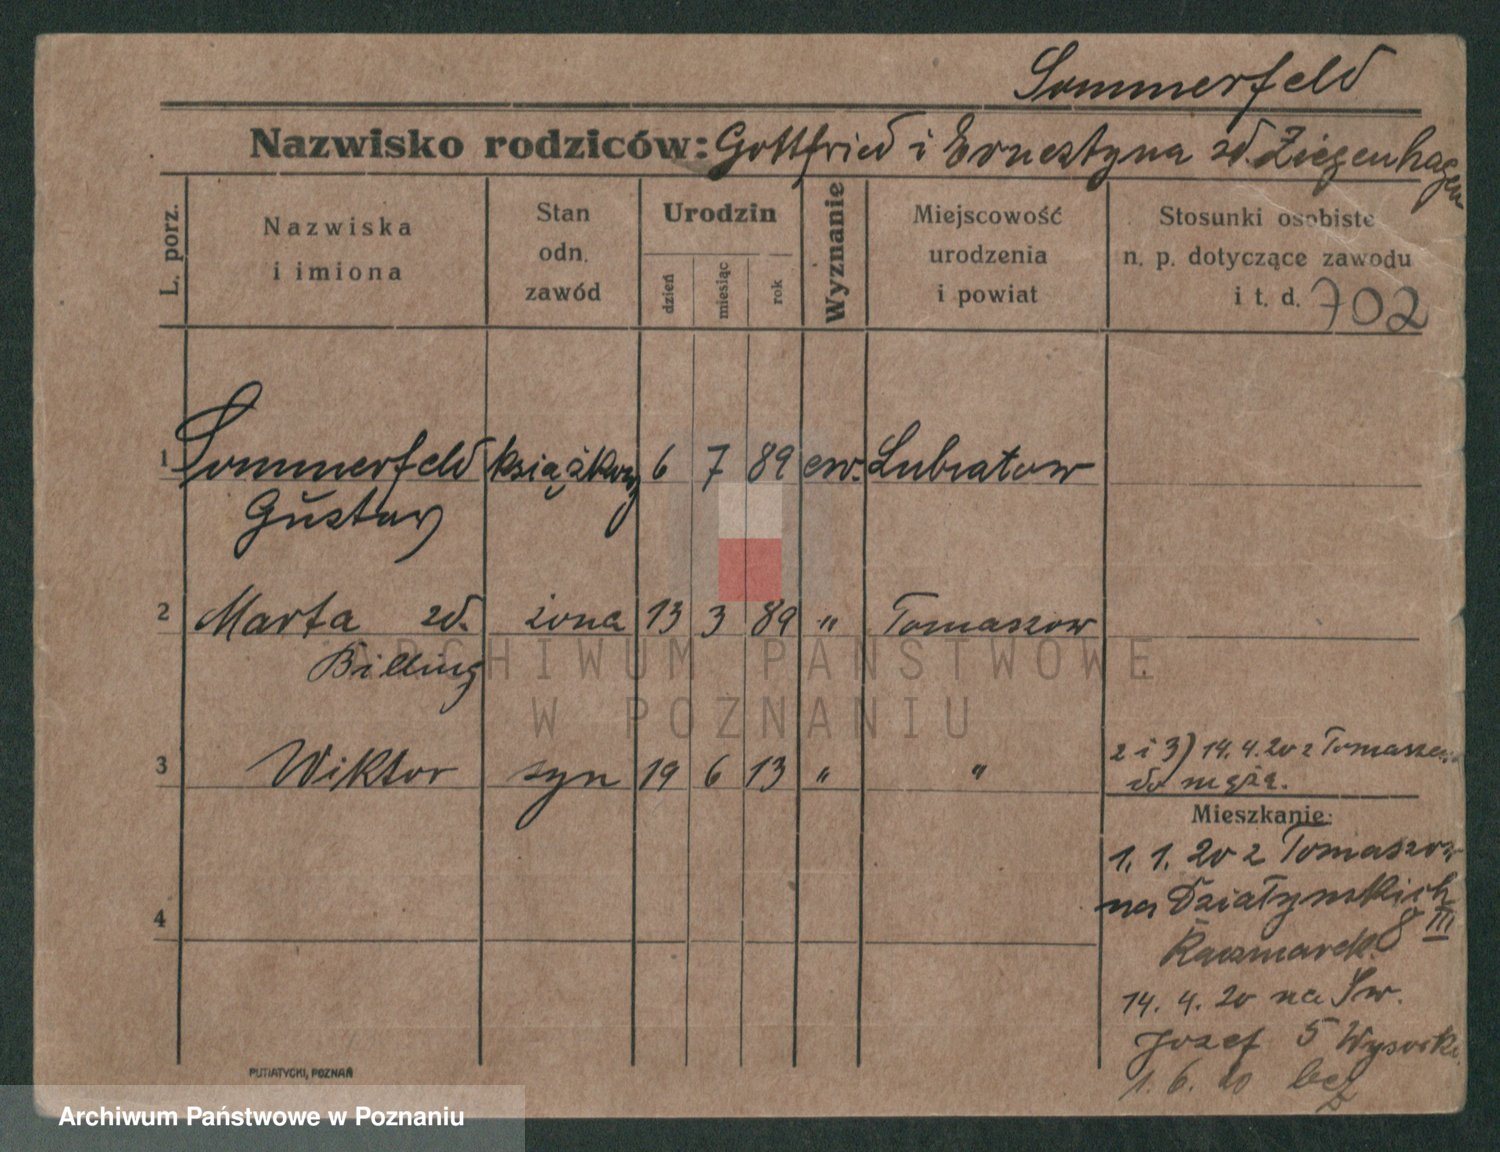 Sommerfeld
Nazwisko rodziców: Gottfried i Ernestyna zd. Ziegenhagen
L. porz.
Nazwiska i imiona
Stan odn. zawód
Urodzin
dzień
miesiąc
rok
Wyznanie
Miejscowość urodzenia i powiat
Stosunki osobiste n. p. dotyczące zawodu i t. d. 702
1 Sommerfeld książkowy 6 7 89 ew. Lubiatow
Gustaw
2 Marta zd. żona 13 3 89 " Tomaszow
Billing
3 Wiktor syn 19 6 13 " "
2 i 3) 14.4.20 z Tomaszowa
do męża.
Mieszkanie:
1. 1. 20 z Tomaszow
na Działyńskich
8 III
Kaczmarek.
4
14. 4. 20 na Św.
Jozef 5 Wysocki
1. 6. 20
PUTIATYCKI, POZNAŃ
ARCHIWUM PAŃSTWOWE
W POZNANIU
Archiwum Państwowe w Poznaniu